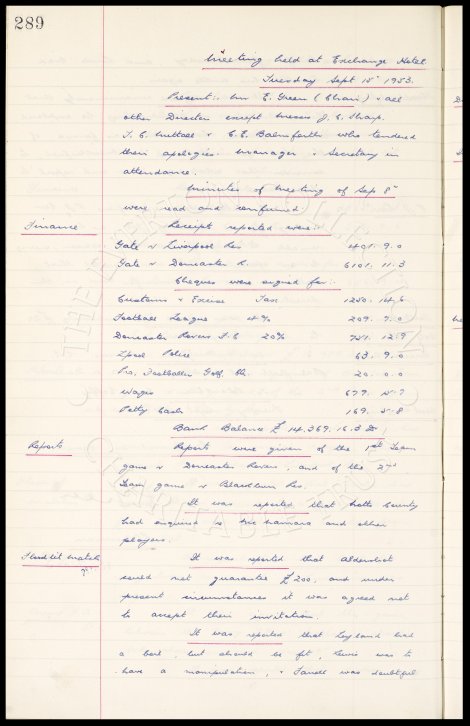 289
Meeting held at Exchange Hotel
Tuesday Sept 15" 1953.
Present:. Mr E. Green (Chair) & all
other Director except Messrs J. C. Sharp.
T. C. Nuttall & C. E. Balmforth who tendered
their apologies. Manager & Secretary in
attendance.
Minutes of Meeting of Sep 8"
were read and confirmed
Finance Receipts reported were:
Gate v Liverpool Res 401. 9. 0
Gate v Doncaster R. 6101. 11. 3
Cheques were signed for:-
Customs & Excise Tax 1250. 14. 6
Football League 4% 209. 7. 0
Doncaster Rovers F.C 20% 751. 12. 9
Lpool Police 63. 9. 0
Pro. Footballer Golf Ch. 20. 0. 0
Wages 679. 15. 7
Petty Cash 169. 5. 8
Bank Balance £ 14.369. 16. 3
Reports Reports were given of the 1st Team
game v Doncaster Rovers, and of the 2nd
Team game v Blackburn Res.
It was reported that Notts County
had enquired re McNamara and other
players.
Floodlit match It was reported that Aldershot
could not guarantee £200, and under
present circumstances it was agreed not
to accept their invitation.
It was reported that Leyland had
a boil, but should be fit, Lewis was to
have a manipulation, & Farrell was doubtful
THE EVERTON COLLECTION
CHARITABLE TRUST